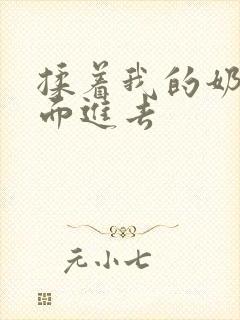 揉着我的奶
而進去
元小七